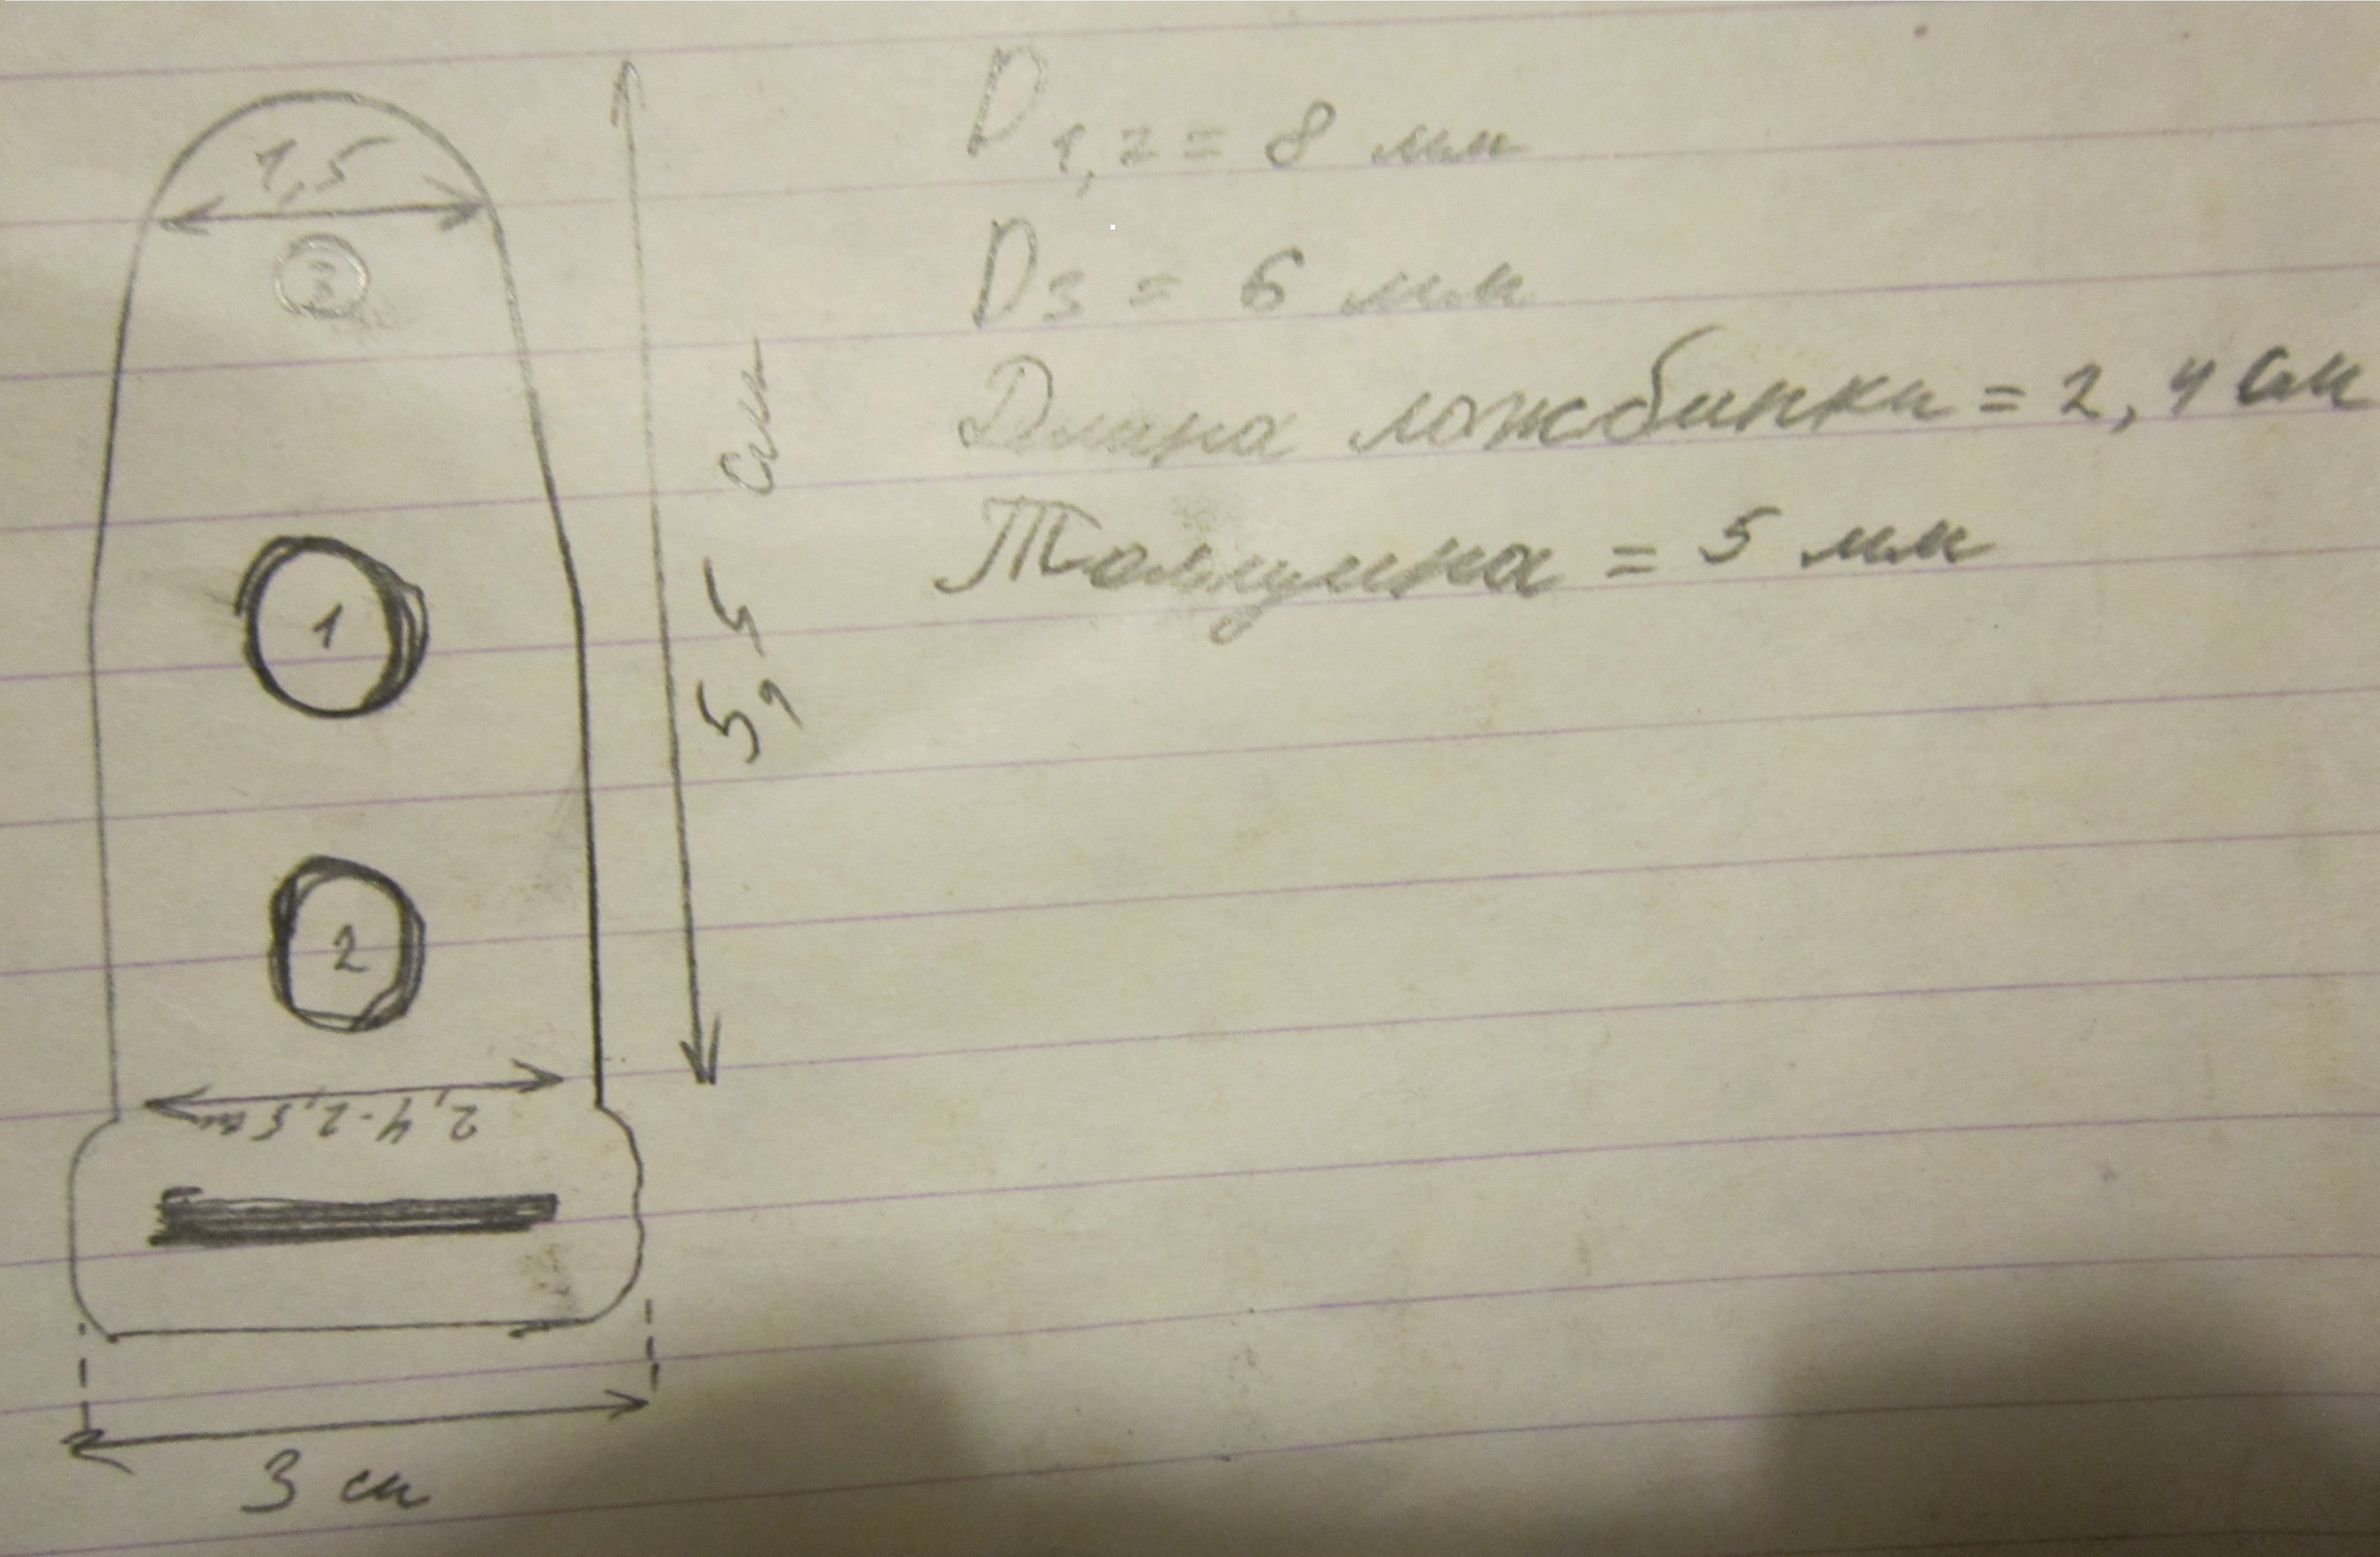 1,5
3
1
2
5,5 см
2,4-2,5 см
3 см
D1,2 = 8 мм
D3 = 6 мм
Длина ложбинки = 2,4 см
Толщина = 5 мм